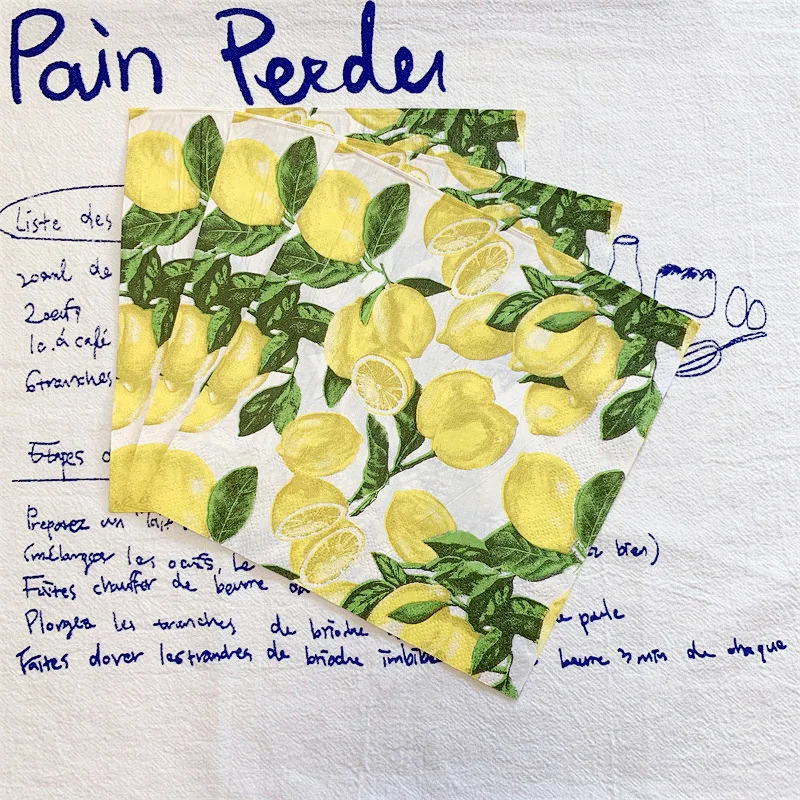 Pain Perdu
Liste des
200ml de
2 oeufs
1c.à café
6 tranches
Etapes d
Preparez un "lait
(mélanger les oeufs, le bien)
Faites chauffer de beurre
Plongez les tranches de brioche poele
Faites dorer les tranches de brioche imbibe beurre 3 min de chaque